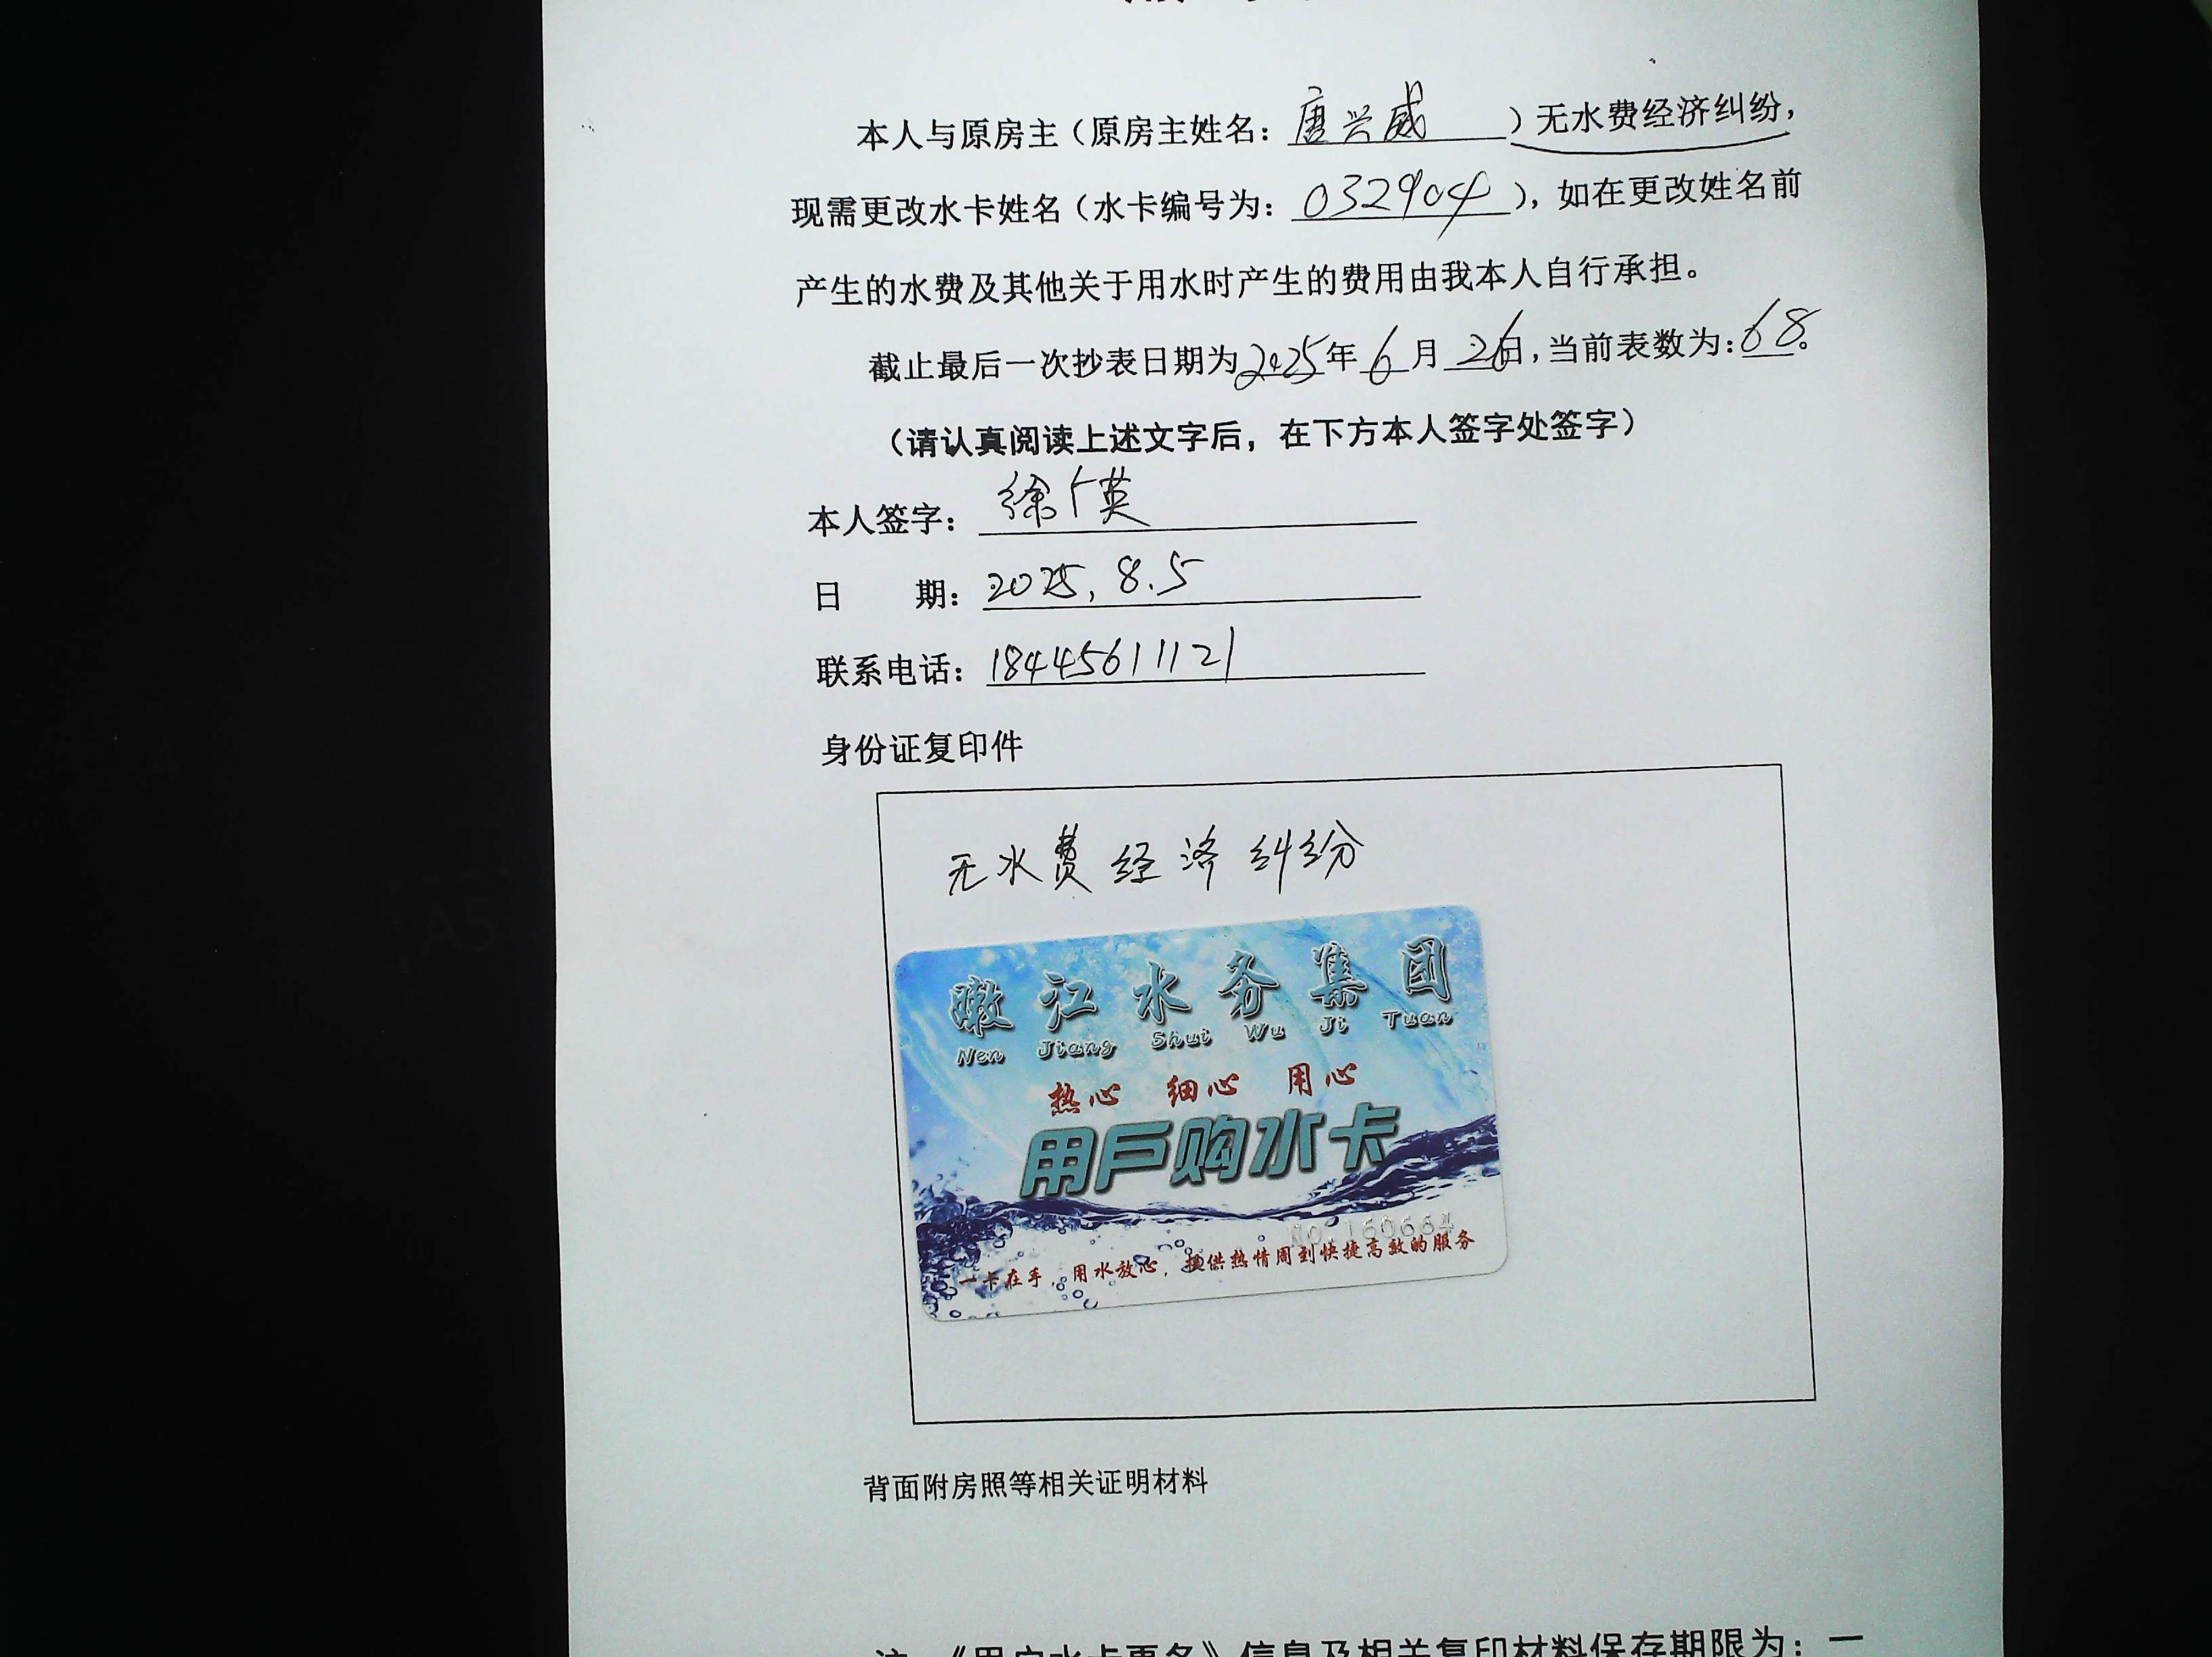 本人与原房主（原房主姓名：唐兴威）无水费经济纠纷，
现需更改水卡姓名（水卡编号为：032904），如在更改姓名前
产生的水费及其他关于用水时产生的费用由我本人自行承担。
截止最后一次抄表日期为2025年6月26日，当前表数为：68。
（请认真阅读上述文字后，在下方本人签字处签字）
本人签字：徐 英
日 期：2025，8.5
联系电话：18445611121
身份证复印件
无水费经济纠纷
嫩江水务集团
Nen Jiang Shui Wu Ji Tuan
热心 细心 用心
用戶购水卡
No.160664
一卡在手，用水放心，提供热情周到快捷高效的服务
背面附房照等相关证明材料
注：《用户水卡更名》信息及相关复印材料保存期限为：一